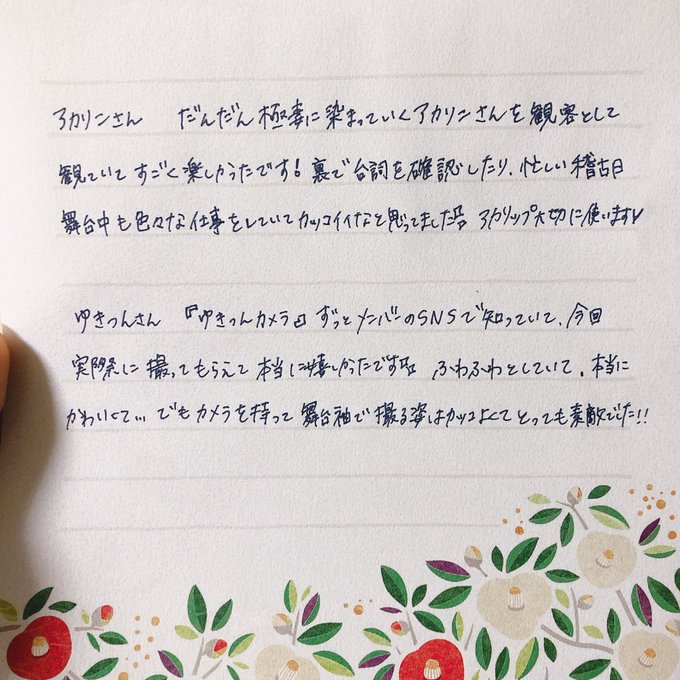 アカリンさん だんだん極妻に染まっていくアカリンさんを観客として
観ていてすごく楽しかったです! 裏で台詞を確認したり、忙しい稽古日
舞台中も色々な仕事をしていてカッコイイなと思ってました アカリップ大切に使います
ゆきつんさん 『ゆきつんカメラ』ずっとメンバーのSNSで知っていて、今回
実際に撮ってもらえて本当に嬉しかったです ふわふわとしていて、本当に
かわいくて… でもカメラを持って舞台袖で撮る姿はカッコよくてとっても素敵でした!!